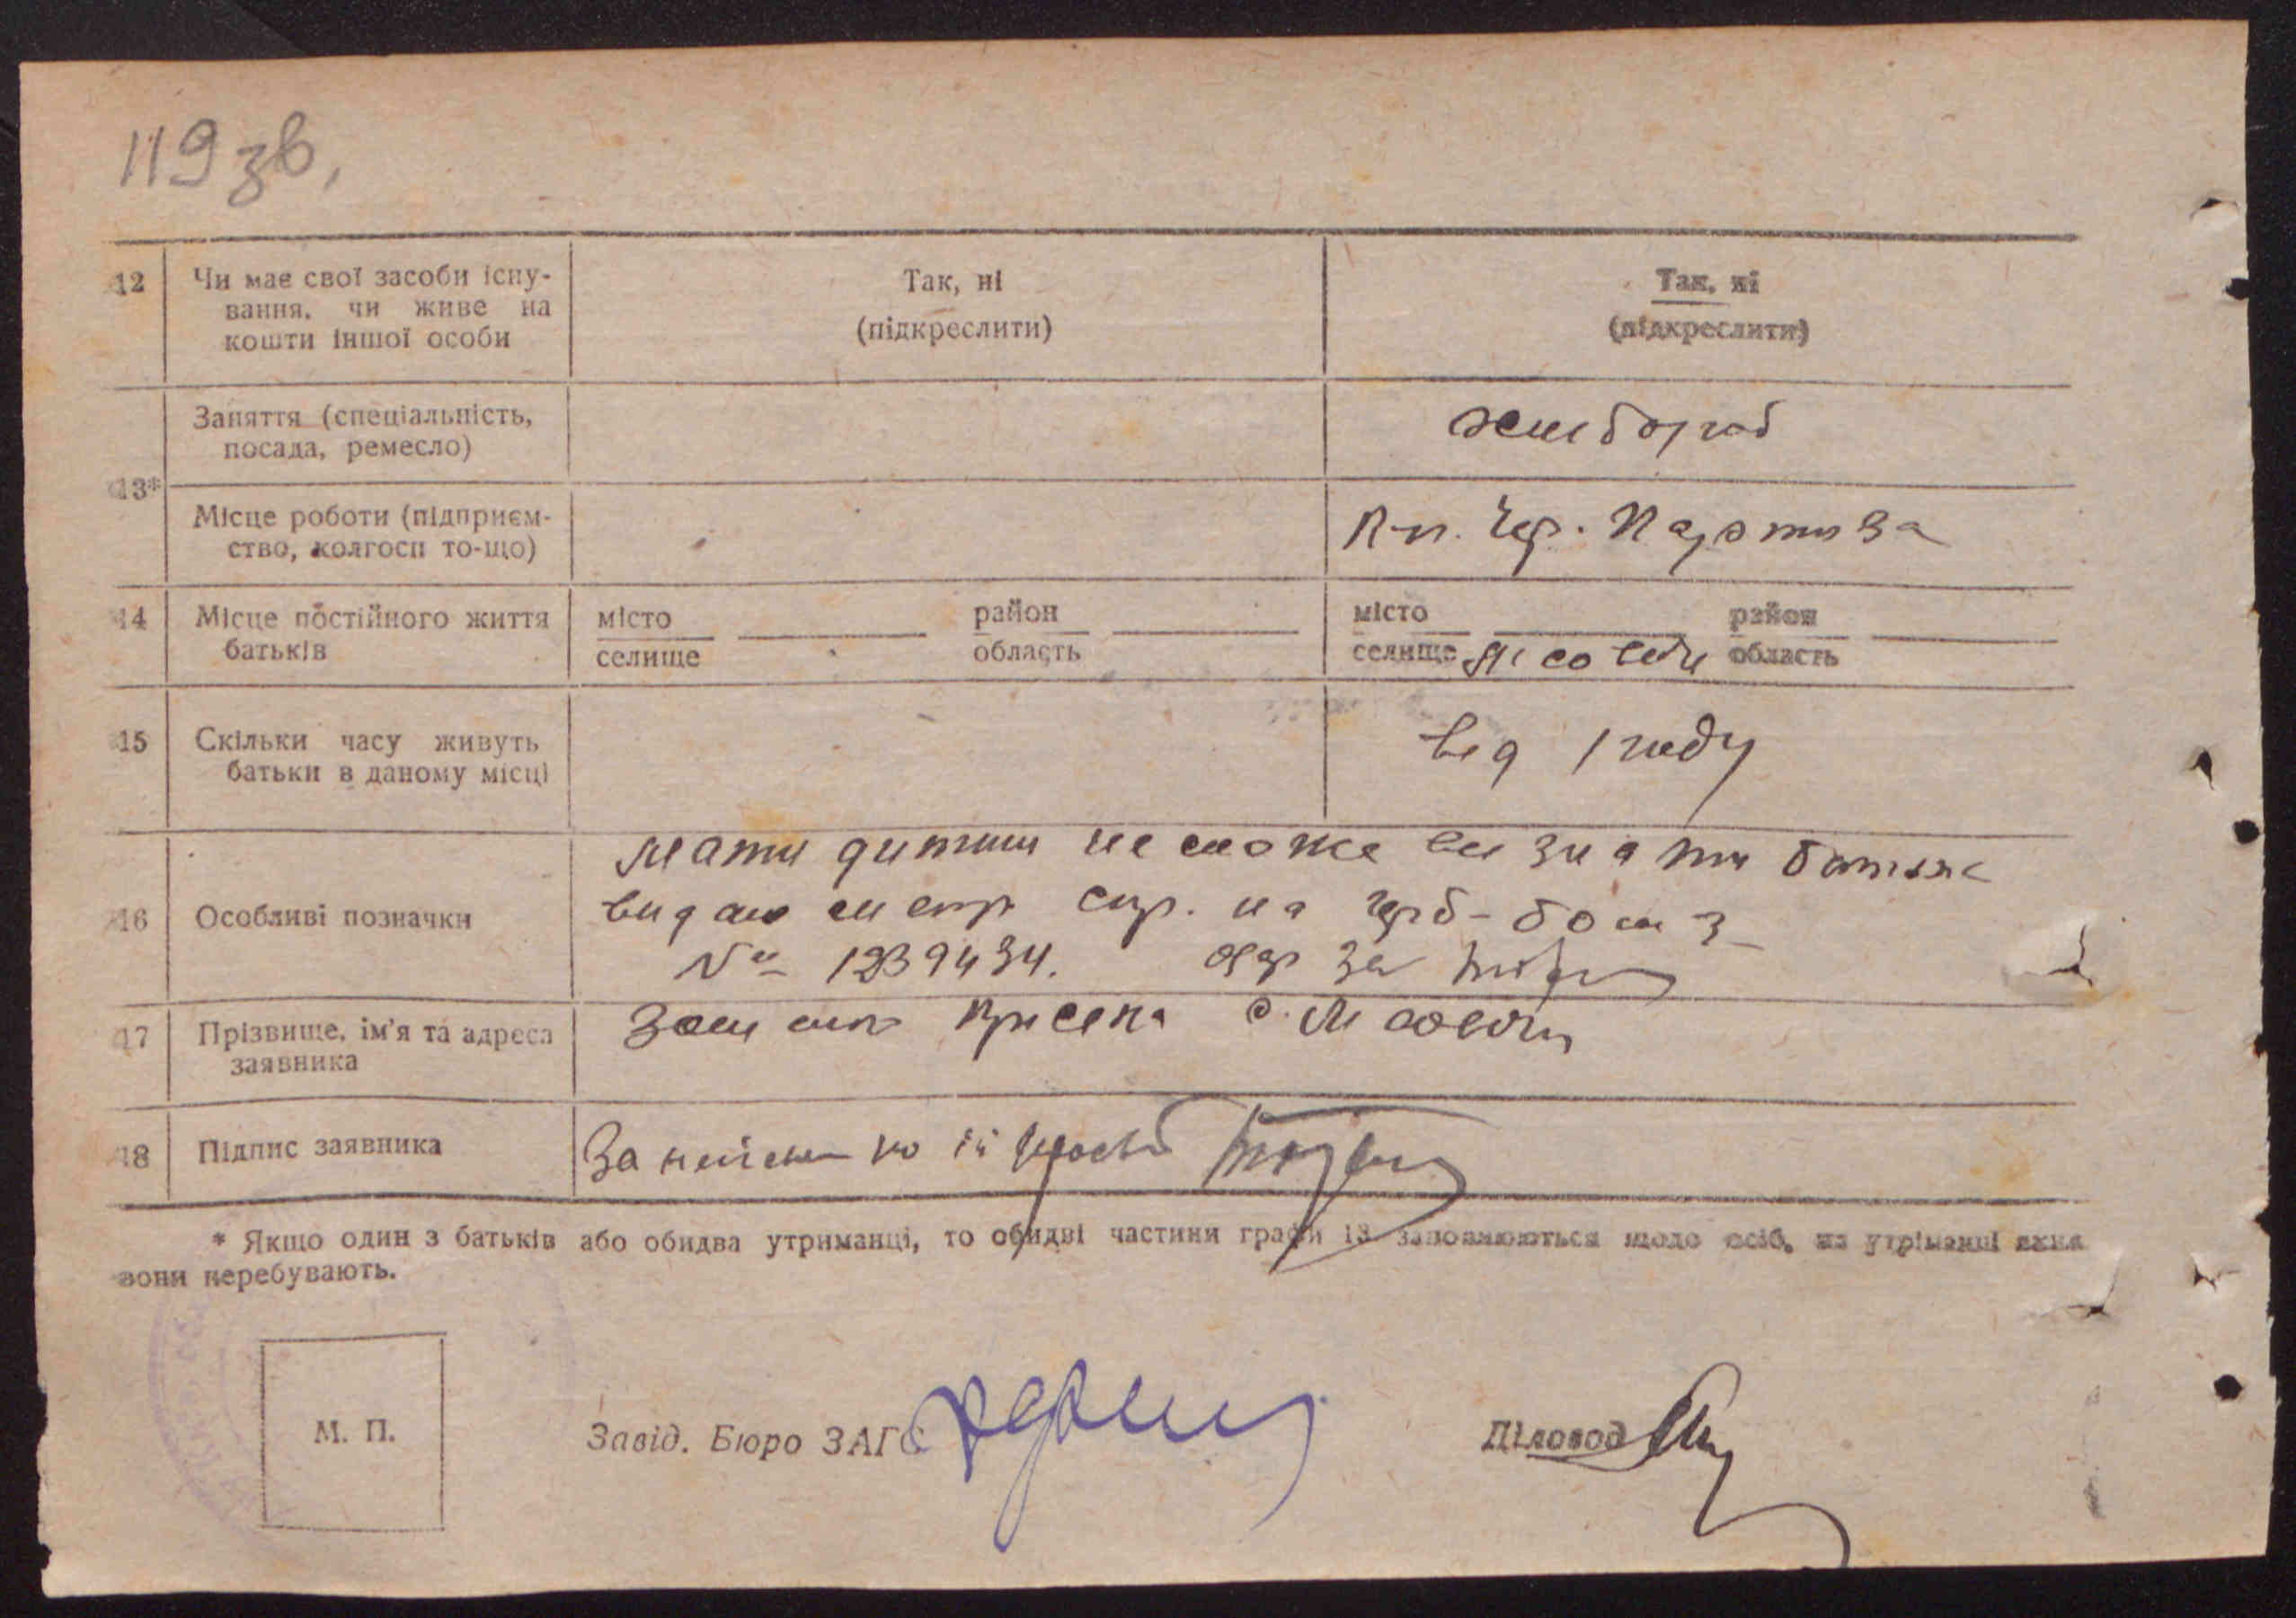 119 зв.
12 Чи має свої засоби існу-
вання, чи живе на
кошти іншої особи
Так, ні
(підкреслити)
Так, ні
(підкреслити)
13*
Заняття (спеціальність,
посада, ремесло)
Місце роботи (підприєм-
ство, колгосп то-що)
К-п. Чер.
14 Місце постійного життя
батьків
місто район
селище область
місто район
селище область
15 Скільки часу живуть
батьки в даному місці
від 1 году
16 Особливі позначки
Мати дитини не може визнати батька
видано спр. на
№ 1239434. за
17 Прізвище, ім'я та адреса
заявника
с.
18 Підпис заявника
За
* Якщо один з батьків або обидва утриманці, то обидві частини графи 13 заповнюються щодо осіб, на утріманні яких
вони перебувають.
М. П.
Завід. Бюро ЗАГС
Діловод